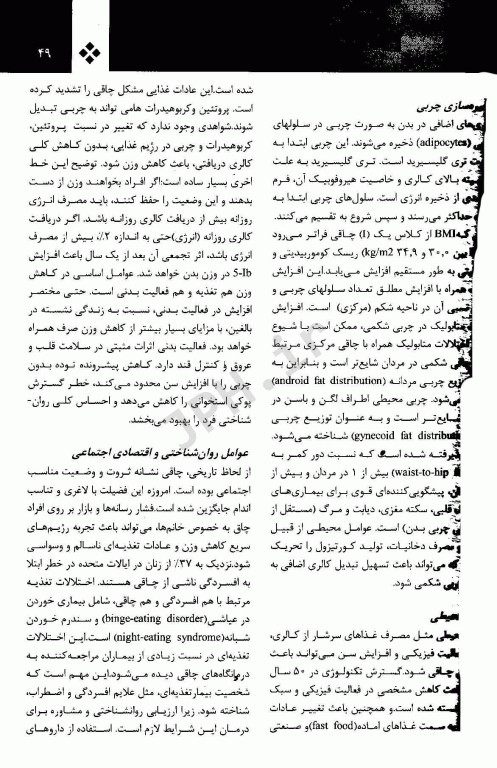 ۴۹
ذخیره‌سازی چربی
اضافی در بدن به صورت چربی در سلولهای
(adipocytes) ذخیره می‌شوند. این چربی ابتدا به
تری گلیسیرید است. تری گلیسیرید به علت
بالای کالری و خاصیت هیروفوبیک آن، فرم
از ذخیره انرژی است. سلول‌های چربی ابتدا به
حداکثر می‌رسند و سپس شروع به تقسیم می‌کنند.
BMI از کلاس یک (I) چاقی فراتر می‌رود
بین ۳۰,۰ و ۳۴,۹ kg/m2) ریسک کوموربیدیتی و
به طور مستقیم افزایش می‌یابد.این افزایش
همراه با افزایش مطلق تعداد سلولهای چربی و
آن در ناحیه شکم (مرکزی) است. افزایش
متابولیک در چربی شکمی، ممکن است با شیوع
اختلالات متابولیک همراه با چاقی مرکزی مرتبط
شکمی در مردان شایع‌تر است و بنابراین به
چربی مردانه (android fat distribution)
می‌شود. چربی محیطی اطراف لگن و باسن در
شایع‌تر است و به عنوان توزیع چربی
gynecoid fat distribu) شناخته می‌شود.
گرفته شده است که نسبت دور کمر به
waist-to-hip) بیش از ۱ در مردان و بیش از
پیشگویی‌کننده‌ای قوی برای بیماری‌های
قلبی، سکته مغزی، دیابت و مرگ (مستقل از
چربی بدن) است. عوامل محیطی از قبیل
مصرف دخانیات، تولید کورتیزول را تحریک
که می‌تواند باعث تسهیل تبدیل کالری اضافی به
شکمی شود.
محیطی
مثل مصرف غذاهای سرشار از کالری،
فیزیکی و افزایش سن می‌تواند باعث
چاقی شود.گسترش تکنولوژی در ۵۰ سال
کاهش مشخصی در فعالیت فیزیکی و سبک
شده است.و همچنین باعث تغییر عادات
سمت غذاهای اماده(fast food)و صنعتی
شده است.این عادات غذایی مشکل چاقی را تشدید کرده
است. پروتئین وکربوهیدرات هامی تواند به چربی تبدیل
شوند.شواهدی وجود ندارد که تغییر در نسبت پروتئین،
کربوهیدرات و چربی در رژیم غذایی، بدون کاهش کلی
کالری دریافتی، باعث کاهش وزن شود. توضیح این خط
آخری بسیار ساده است؛اگر افراد بخواهند وزن از دست
بدهند و این وضعیت را حفظ کنند، باید مصرف انرژی
روزانه بیش از دریافت کالری روزانه باشد. اگر دریافت
کالری روزانه (انرژی)حتی به اندازه ۲٪، بیش از مصرف
انرژی باشد، اثر تجمعی آن بعد از یک سال باعث افزایش
5-Ib در وزن بدن خواهد شد. عوامل اساسی در کاهش
وزن هم تغذیه و هم فعالیت بدنی است. حتی مختصر
افزایش در فعالیت بدنی، نسبت به زندگی نشسته در
بالغین، با مزایای بسیار بیشتر از کاهش وزن صرف همراه
خواهد بود. فعالیت بدنی اثرات مثبتی در سلامت قلب و
عروق و کنترل قند دارد. کاهش پیشرونده توده بدون
چربی را با افزایش سن محدود می‌کند، خطر گسترش
پوکی استخوانی را کاهش می‌دهد و احساس کلی روان-
شناختی فرد را بهبود می‌بخشد.
عوامل روان‌شناختی و اقتصادی اجتماعی
از لحاظ تاریخی، چاقی نشانه ثروت و وضعیت مناسب
اجتماعی بوده است. امروزه این فضیلت با لاغری و تناسب
اندام جایگزین شده است.فشار رسانه‌ها و بازار بر روی افراد
چاق به خصوص خانم‌ها، می‌تواند باعث تجربه رژیم‌های
سریع کاهش وزن و عادات تغذیه‌ای ناسالم و وسواسی
شود.نزدیک به ۳۷٪ از زنان در ایالات متحده در خطر ابتلا
به افسردگی ناشی از چاقی هستند. اختلالات تغذیه
مرتبط با هم افسردگی و هم چاقی، شامل بیماری خوردن
در عیاشی(binge-eating disorder) و سندرم خوردن
شبانه(night-eating syndrome) است.این اختلالات
تغذیه‌ای در نسبت زیادی از بیماران مراجعه‌کننده به
درمانگاه‌های چاقی دیده می‌شود.این مهم است که
شخصیت بیمارتغذیه‌ای، مثل علایم افسردگی و اضطراب،
شناخته شود. زیرا ارزیابی روانشناختی و مشاوره برای
درمان این شرایط لازم است. استفاده از داروهای